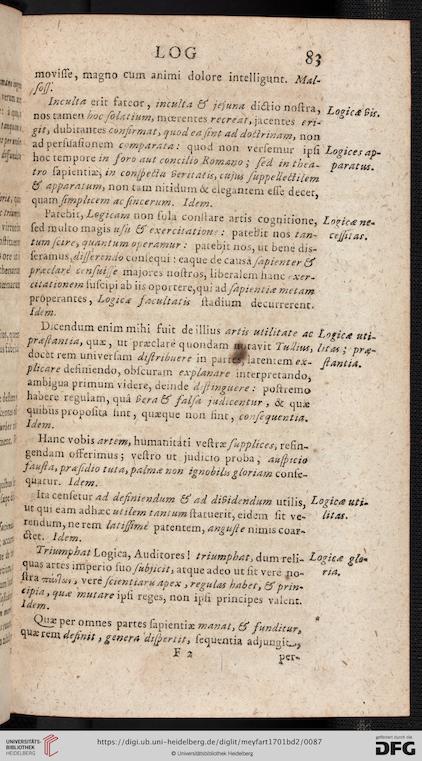 LOG 83
moviſſe, magno cum animi dolore intelligunt. Mal-
ſoſſ.
Inculta erit fateor, inculta & jejuna dictio noſtra,
nos tamen hoc ſolatium, mœrentes recreat, jacentes eri-
git, dubitantes confirmat, quod ea ſint ad doctrinam, non
ad perſuaſionem comparata: quod non verſemur ipſi
hoc tempore in foro aut concilio Romano; ſed in thea-
tro ſapientiæ, in conſpectu veritatis, cujus ſuppellectilem
& apparatum, non tam nitidum & elegantem eſſe decet,
quam ſimplicem ac ſincerum. Idem.
Logicæ vis.
Logices ap-
paratus.
Patebit, Logicam non ſola conſtare artis cognitione,
ſed multo magis uſu & exercitatione: patebit nos tan-
tum ſcire, quantum operamur: patebit nos, ut bene diſ-
ſeramus, differendo conſequi: eaque de causâ ſapienter &
præclarè cenſuiſſe majores noſtros, liberalem hanc exer-
citationem ſuſcipi ab iis oportere, qui ad ſapientiæ metam
properantes, Logicæ facultatis ſtadium decurrerent.
Idem.
Logicæ ne-
ceſſitas.
Dicendum enim mihi fuit de illius artis utilitate ac
præſtantia, quæ, ut præclarè quondam Tullius,
docet rem univerſam diſtribuere in partes, latentem ex-
plicare definiendo, obſcuram explanare interpretando,
ambigua primum videre, deinde diſtinguere: poſtremo
habere regulam, quâ vera & falſa judicentur, & quæ
quibus propoſita ſint, quæque non ſint, conſequentia.
Idem.
Logicæ uti-
litas; præ-
ſtantia.
Hanc vobis artem, humanitati veſtræ ſupplices, reſin-
gendam offerimus; veſtro ut judicio proba, auſpicio
fauſta, præſidio tuta, palmæ non ignobilis gloriam conſe-
quatur. Idem.
Ita cenſetur ad definiendum & ad dividendum utilis,
ut qui eam adhæc utilem tantum ſtatuerit, eidem ſit ve-
rendum, ne rem latiſſimè patentem, anguſte nimis coar-
ctet. Idem.
Logicæ uti-
litas.
Triumphat Logica, Auditores! triumphat, dum reli-
quas artes imperio ſuo ſubjicit, atque adeo ut ſit verè no-
ſtra, verè ſcientiarū apex, regulas habet, & prin-
cipia, quæ mutare ipſi reges, non ipſi principes valent.
Idem.
Logicæ glo-
ria.
Quæ per omnes partes ſapientiæ manat, & funditur,
quæ rem definit, genera diſpertit, ſequentia adjungit,
F 2 per-
UNIVERSITÄTS-
BIBLIOTHEK
HEIDELBERG
https://digi.ub.uni-heidelberg.de/diglit/meyfart1701bd2/0087
© Universitätsbibliothek Heidelberg
gefördert durch die
DFG